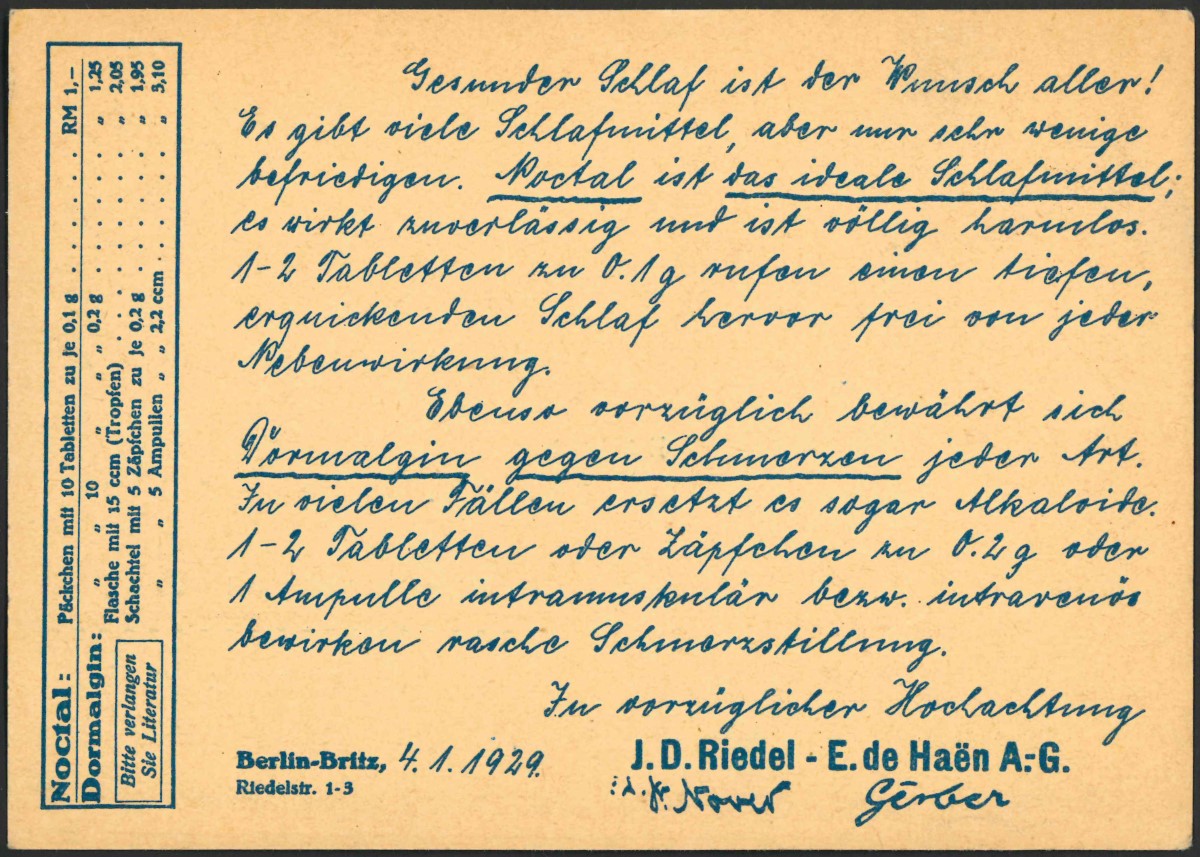 Gesunder Schlaf ist der Wunsch aller!
Es gibt viele Schlafmittel, aber nur sehr wenige
befriedigen. Noctal ist das ideale Schlafmittel;
es wirkt zuverlässig und ist völlig harmlos.
1-2 Tabletten zu 0.1g rufen einen tiefen,
erquickenden Schlaf hervor frei von jeder
Nebenwirkung.
Ebenso vorzüglich bewährt sich
Dormalgin gegen Schmerzen jeder Art.
In vielen Fällen ersetzt es sogar Alkaloide.
1-2 Tabletten oder Zäpfchen zu 0.2g oder
1 Ampulle intramuskulär bezw. intravenös
bewirken rasche Schmerzstillung.
In vorzüglicher Hochachtung
Berlin-Britz, 4.1.1929.
Riedelstr. 1-3
J. D. Riedel - E. de Haën A.-G.
Gerber
Noctal: Päckchen mit 10 Tabletten zu je 0,1 g . . . . . RM 1,—
Dormalgin: „ „ 10 „ „ „ 0,2 g . . . . . „ 1,25
Flasche mit 15 ccm (Tropfen) . . . . . . . „ 2,05
Schachtel mit 5 Zäpfchen zu je 0,2 g . . . . . „ 1,95
„ „ 5 Ampullen „ „ 2,2 ccm . . . . „ 3,10
Bitte verlangen
Sie Literatur